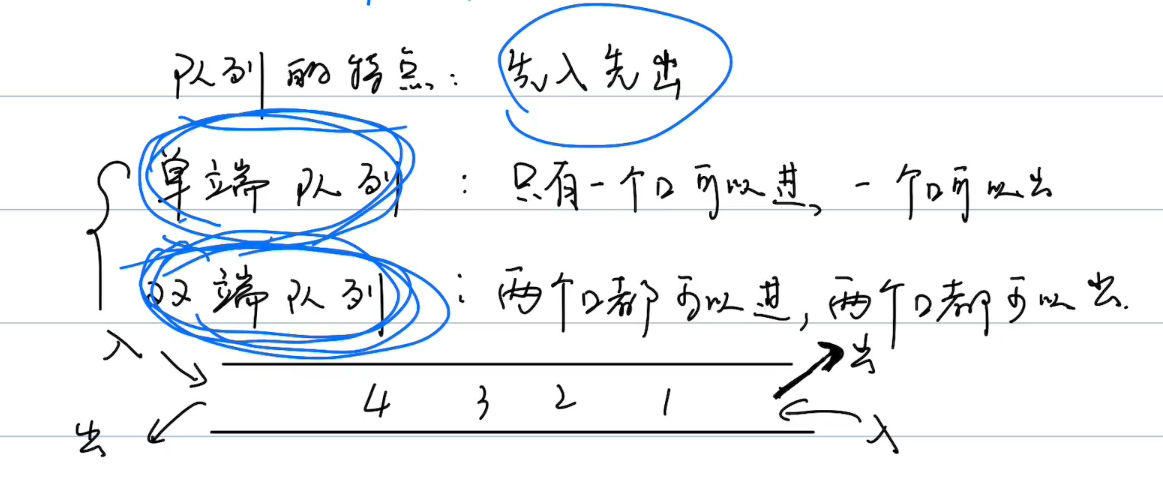 队列的特点：先入先出
单端队列：只有一个口可以进，一个口可以出
双端队列：两个口都可以进，两个口都可以出.
入 出
4 3 2 1
出 入